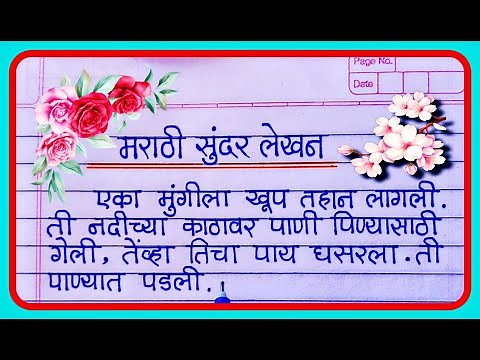 Page No.
Date
मराठी सुंदर लेखन
एका मुंगीला खूप तहान लागली.
ती नदीच्या काठावर पाणी पिण्यासाठी
गेली, तेंव्हा तिचा पाय घसरला. ती
पाण्यात पडली.